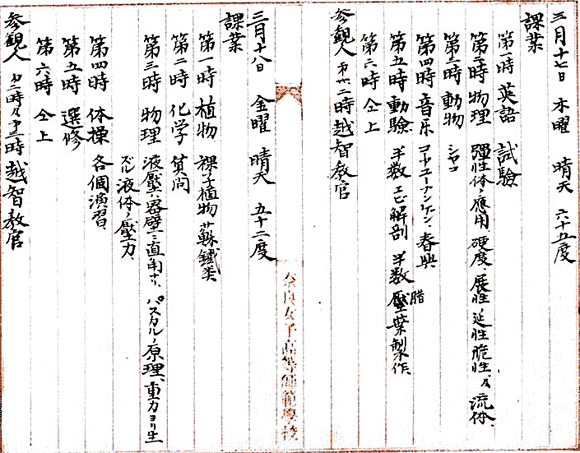 三月十七日　木曜　晴天　六十五度
課業
第一時　英語　試験
第二時　物理　弾性体ノ應用、硬度、展性、延性脆性、及流体、
第三時　動物　シャコ
第四時　音楽　コールユーブンゲン、春興
第五時　動験　半数エビ解剖　半数腊葉製作、
第六時　仝上
参観人　第二時　越智教官
奈良女子高等師範學校
三月十八日　金曜　晴天　五十二度
課業
第一時　植物　裸子植物、蘇鐵类
第二時　化学　質問
第三時　物理　液壓ハ容壁ニ直角ナリ、パスカルノ原理、重力ヨリ生
ズル液体ノ壓力、
第四時　体操　各個演習
第五時　選修
第六時　仝上
参観人　第二時及第三時　越智教官